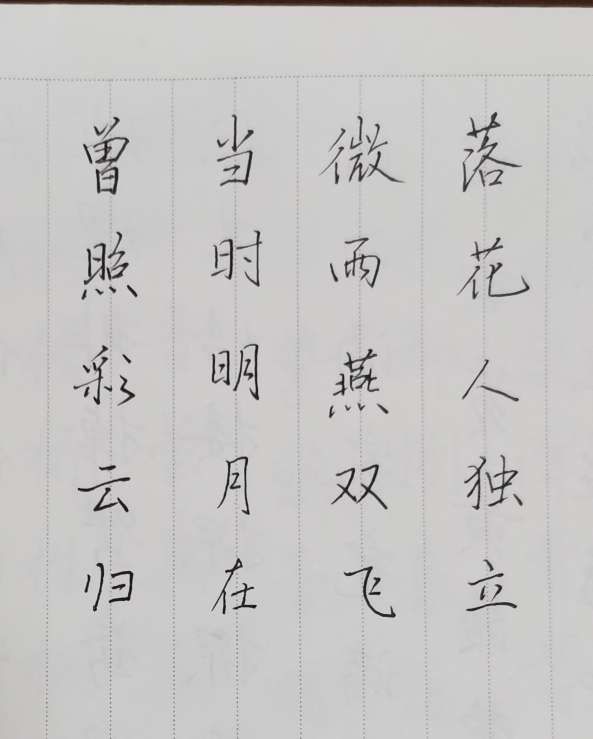 落花人独立
微雨燕双飞
当时明月在
曾照彩云归